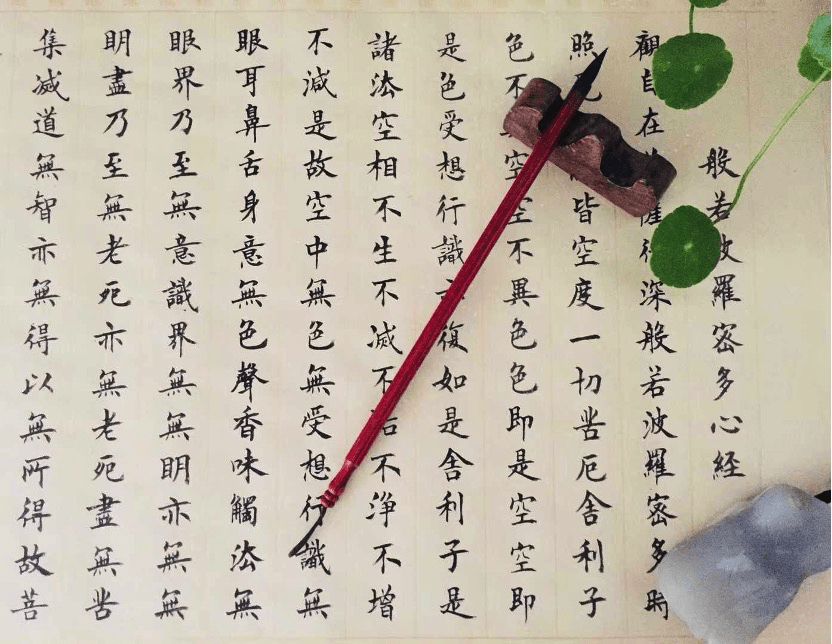 般若波羅密多心経
觀自在菩薩行深般若波羅密多時
照見皆空度一切苦厄舍利子
色不空空不異色色即是空空即
是色受想行識亦復如是舍利子是
諸法空相不生不滅不垢不淨不增
不減是故空中無色無受想行識無
眼耳鼻舌身意無色聲香味觸法無
眼界乃至無意識界無無明亦無無
明盡乃至無老死亦無老死盡無苦
集滅道無智亦無得以無所得故菩